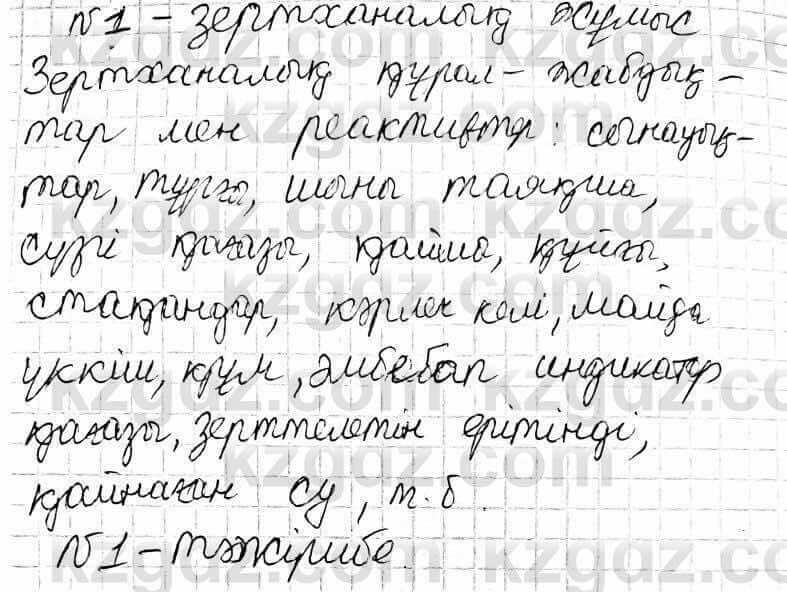 №1 - зертханалық жұмыс
Зертханалық құрал - жабдық -
тар мен реактивтер: сынауық -
тар, тұрғы, шыны таяқша,
сүзгі қағазы, қайшы, құйғы,
стақандар, кәрлен келі, майда
үккіш, құм, әмбебап индикатор
қағазы, зерттелетін ерітінді,
қайнаған су, т.б.
№1 - тәжірибе.
kzgdz.com